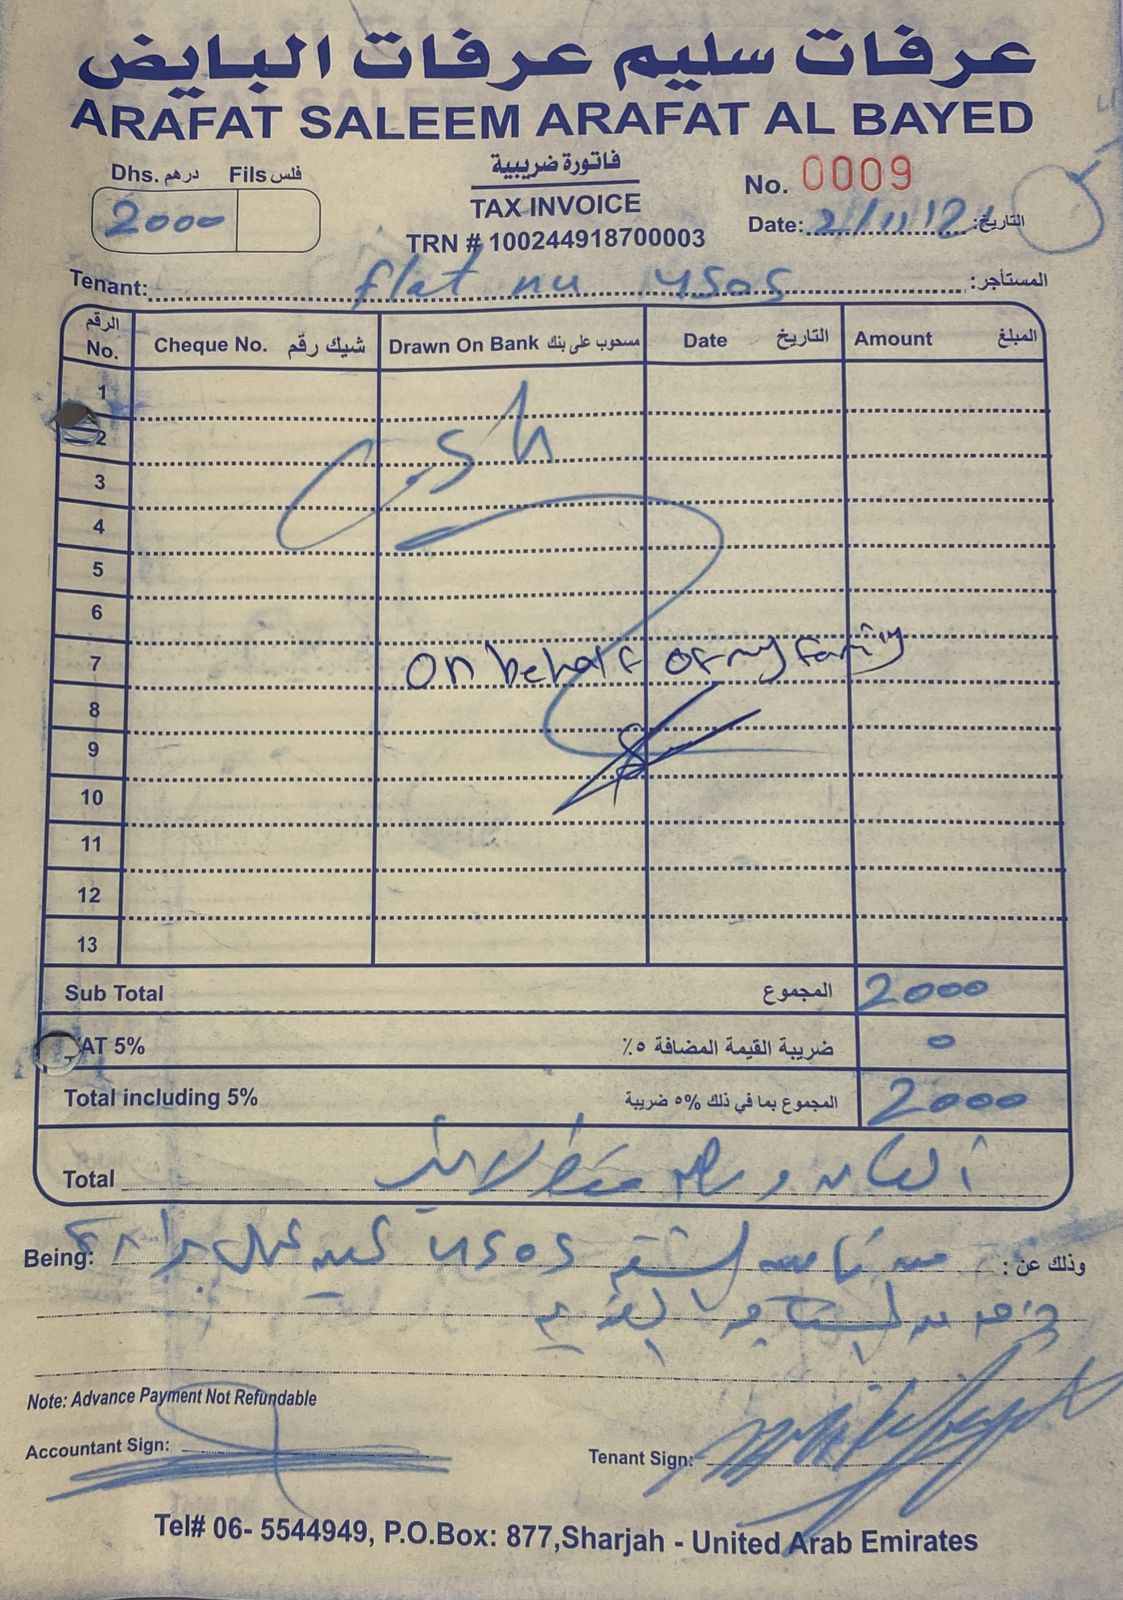 عرفات سليم عرفات البايض
ARAFAT SALEEM ARAFAT AL BAYED
Dhs. درهم Fils فلس
2000
فاتورة ضريبية
TAX INVOICE
TRN # 100244918700003
No. 0009
Date: 2/11/21 التاريخ:
Tenant: flat nu 4505 المستأجر:
الرقم No. Cheque No. شيك رقم Drawn On Bank مسحوب على بنك Date التاريخ Amount المبلغ
1
2
cash
3
4
5
6
7 on behalf of my family
8
9
10
11
12
13
Sub Total المجموع 2000
AT 5% ضريبة القيمة المضافة ٥٪ 0
Total including 5% المجموع بما في ذلك ٥% ضريبة 2000
Total الفان درهم فقط لا غير
Being: الشقة 4505 وذلك عن:
Note: Advance Payment Not Refundable
Accountant Sign:
Tenant Sign:
Tel# 06- 5544949, P.O.Box: 877,Sharjah - United Arab Emirates